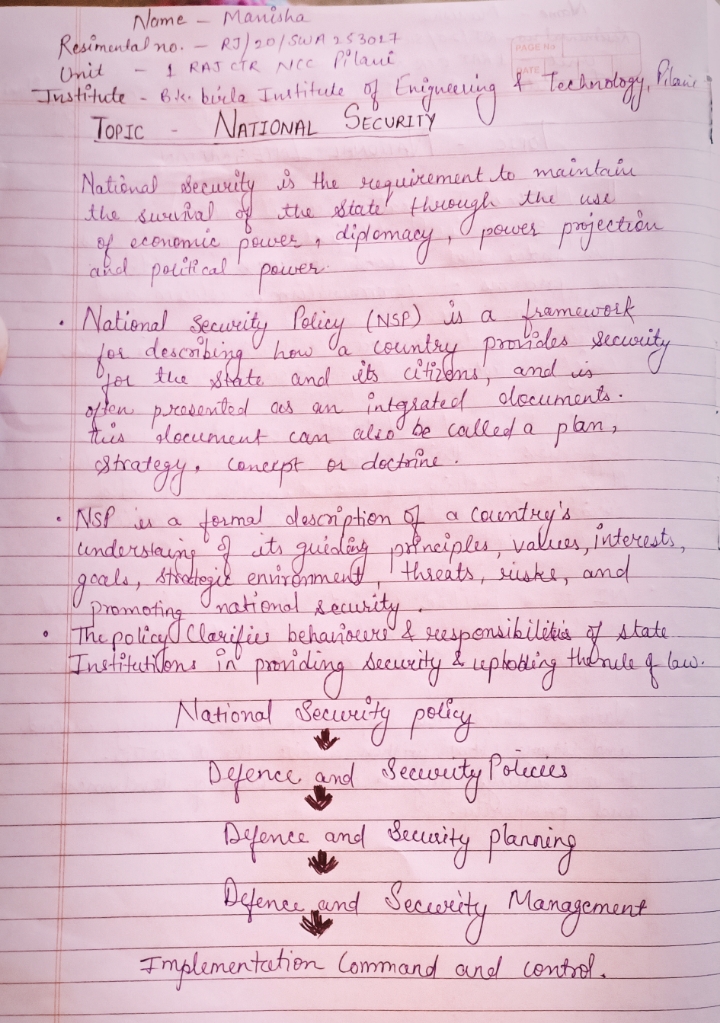 Name - Manisha
Resimental no. - RJ/20/SWA 253027
Unit - 1 RAJ CTR NCC Pilani
PAGE NO
DATE
Institute - B.K. birla Institute of Enigneering & Technology, Pilani
TOPIC - NATIONAL SECURITY
National security is the requirement to maintain
the survival of the state through the use
of economic power, diplomacy, power projection
and political power.
• National Security Policy (NSP) is a framework
for describing how a country provides security
for the state and its citizens, and is
often presented as an intgrated documents.
this document can also be called a plan,
strategy, concept or doctrine.
• NSP is a formal description of a country's
understaing of its guiding principles, values, interests,
goals, strategic environment, threats, risks, and
promoting national security.
• The policy Clarifies behaviours & responsibilities of state
Institutions in providing security & upholding the rule of law.
National Security policy
Defence and Security Policies
Defence and Security planning
Defence and Security Management
Implementation Command and control.